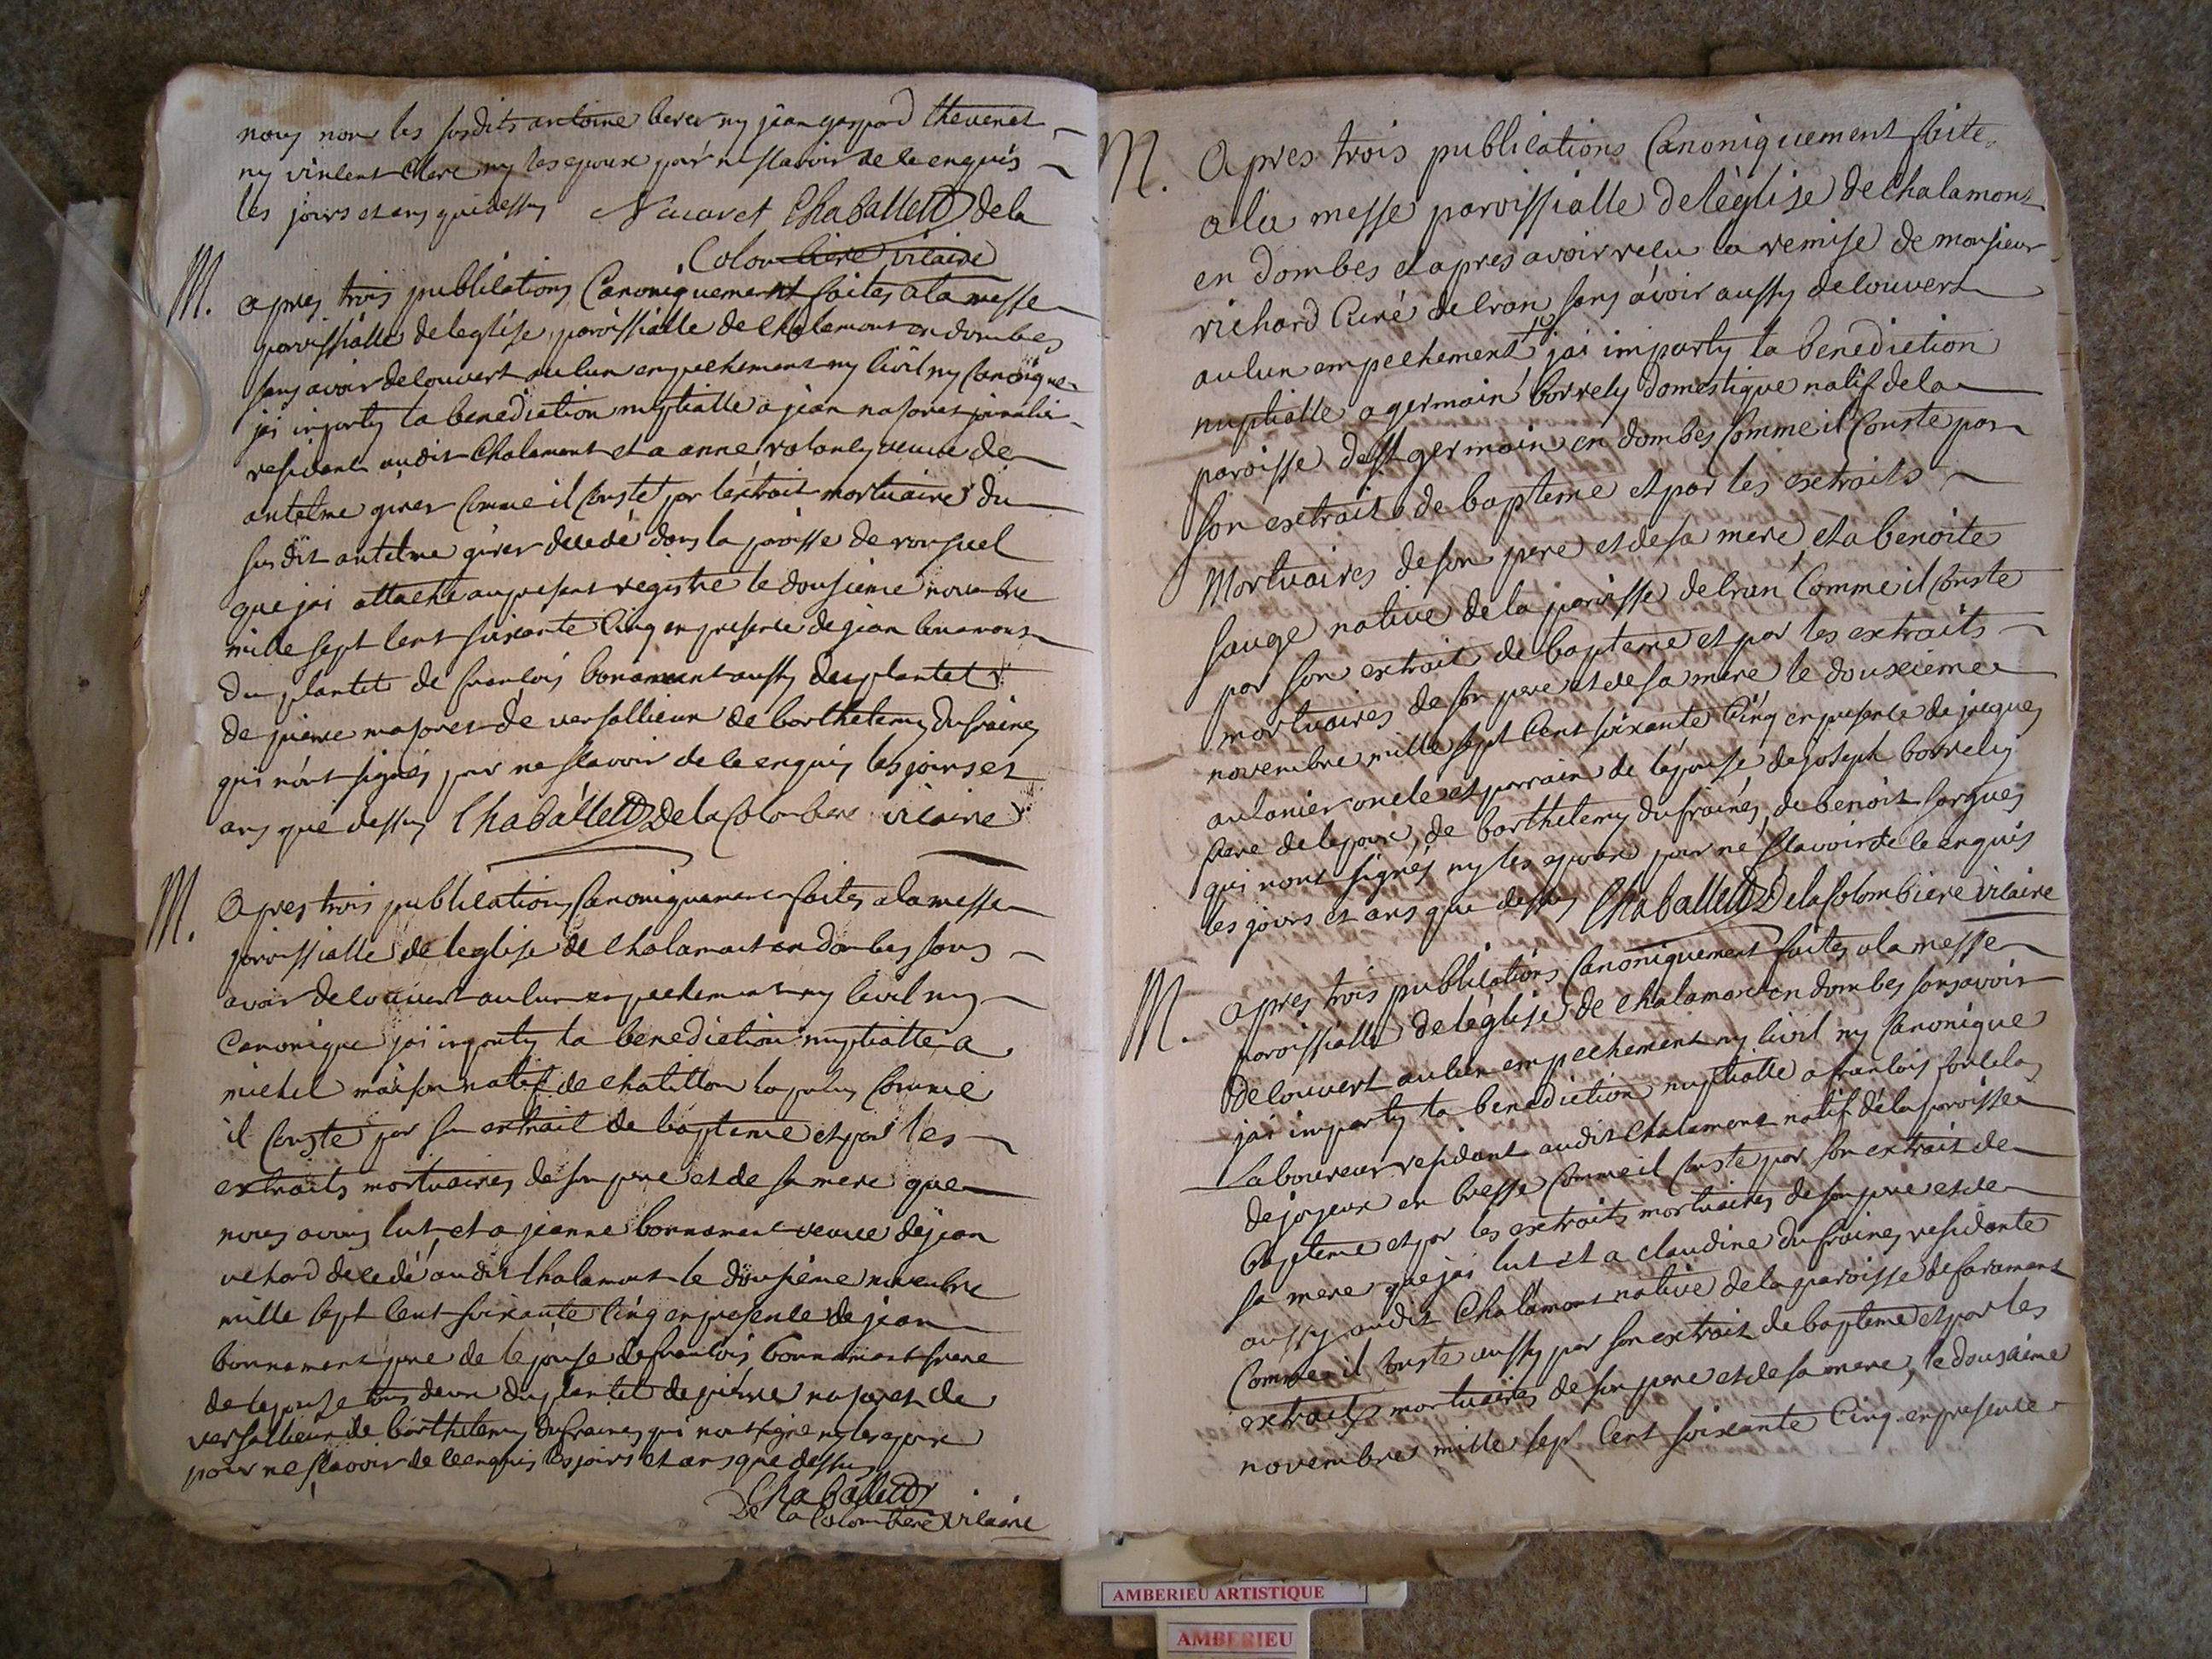 nous non les susdits antoine berer ny jean gaspard thevenet
ny vincent clerc ny les epoux pour ne scavoir de ce enquis
les jours et ans que dessus Nicavet Chaballett de la
Colombiere vicaire
M. apres trois publications Canoniquement faites a la messe
paroissialle de leglise paroissialle de Chalamont en dombes
sans avoir decouvert aucun empechement ny civil ny canonique
jai imparty la benediction nuptialle a jean najoret journalier
resident audit Chalamont et a anne veuve de
antelme girer comme il conste par lextrait mortuaire du
susdit antelme girer decedé dans la paroisse de ronsuel
que jai attaché au present registre le dousieme novembre
mille sept cent soixante cinq en presence de jean bonamont
du plantet de francois bonamont aussy du plantet
de pierre najoret de versallieux de barthelemy dufraines
qui nont signés pour ne scavoir de ce enquis les jours et
ans que dessus Chaballett De la Colombiere vicaire
M. Apres trois publications Canoniquement faites a la messe
paroissialle de leglise de Chalamont en dombes sans
avoir decouvert aucun empechement ny civil ny
Canonique jai imparty la benediction nuptialle a
michel maison natif de chatillon la palus comme
il conste par son extrait de bapteme et par les
extraits mortuaires de son pere et de sa mere que
nous avons lut et a jeanne bonnamont veuve de jean
decedé audit Chalamont le dousieme novembre
mille sept cent soixante cinq en presence de jean
bonnamont pere de lepouse de francois bonnamont frere
de lepouse tous deux du plantet de pierre najoret de
versallieux de barthelemy dufraines qui nont signe ny les epoux
pour ne scavoir de ce enquis les jours et ans que dessus
Chaballett
De la Colombiere vicaire
M. Apres trois publications Canoniquement faite
a la messe paroissialle de léglise de Chalamont
en dombes et apres avoir recu la remise de monsieur
richard Curé de Cran sans avoir aussy decouvert
aucun empechement jai imparty la benediction
nuptialle a germain borrely domestique natif de la
paroisse de st germain en dombes Comme il Conste par
son extrait de bapteme et par les extraits
Mortuaires de son pere et de sa mere et a benoite
sauge native de la paroisse de Cran Comme il Conste
par son extrait de bapteme et par les extraits
mortuaires de son pere et de sa mere le dousieme
novembre mille sept cent soixante cinq en presence de jacques
aulanier oncle et parrain de lépouse de joseph borrely
frere de lepoux, de barthelemy dufraines, de benoit sorgues
qui nont signés ny les epoux pour ne scavoir de ce enquis
les jours et ans que dessus Chaballett De la Colombiere vicaire
M. apres trois publications Canoniquement faites a la messe
paroissialle de leglise de Chalamont en dombes sans avoir
decouvert aucun empechement ny civil ny Canonique
jai imparty la benediction nuptialle a francois
Laboureur residant audit Chalamont natif de la paroisse
de joyeux en bresse Comme il Conste par son extrait de
bapteme et par les extraits mortuaires de son pere et de
sa mere que jai lut et a claudine dufraines residante
aussy audit Chalamont native de la paroisse de faramans
Comme il conste aussy par son extrait de bapteme et par les
extraits mortuaires de son pere et de sa mere, le dousieme
novembre mille sept Cent soixante Cinq en presence
AMBERIEU ARTISTIQUE
AMBERIEU